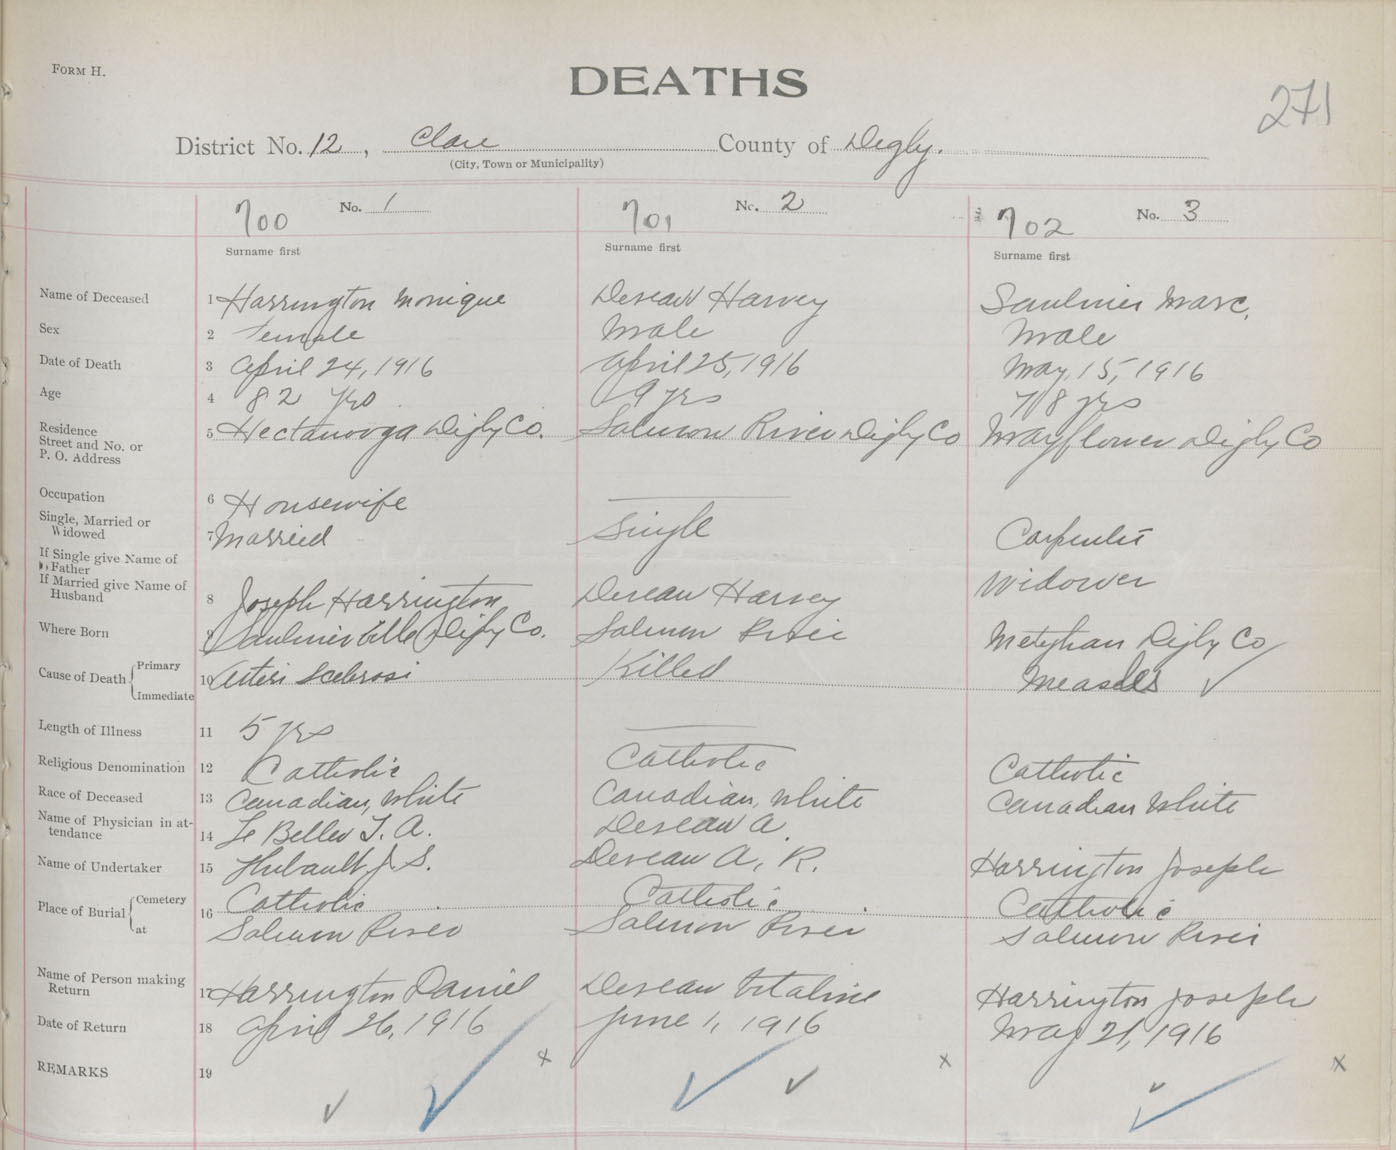 FORM H.
DEATHS
271
District No. 12, Clare County of Digby.
(City, Town or Municipality)
700 No. 1
701 No. 2
702 No. 3
Surname first Surname first Surname first
Name of Deceased 1 Harrington Monique Deveau Harvey Saulnier Marc.
Sex 2 Female Male Male
Date of Death 3 April 24, 1916 April 25, 1916 May 15, 1916
Age 4 82 yrs 9 yrs 78 yrs
Residence
Street and No. or
P. O. Address
5 Hectanooga Digby Co. Salmon River Digby Co Mayflower Digby Co
Occupation 6 Housewife Carpenter
Single, Married or
Widowed
7 Married Single Widower
If Single give Name of
Father
If Married give Name of
Husband
8 Joseph Harrington Deveau Harvey
Where Born 9 Saulnierville Digby Co. Salmon River Meteghan Digby Co
Cause of Death Primary
Immediate
10 Arteri Sclerosi Killed Measels
Length of Illness 11 5 yrs
Religious Denomination 12 Catholic Catholic Catholic
Race of Deceased 13 Canadian, White Canadian, White Canadian White
Name of Physician in at-
tendance
14 Deveau A.
Name of Undertaker 15 Deveau A, R. Harrington Joseph
Place of Burial Cemetery
at
16 Catholic Catholic Catholic
Salmon River Salmon River Salmon River
Name of Person making
Return
17 Harrington Daniel Deveau Vitaline Harrington Joseph
Date of Return 18 April 26, 1916 June 1, 1916 May 21, 1916
REMARKS 19 x x x